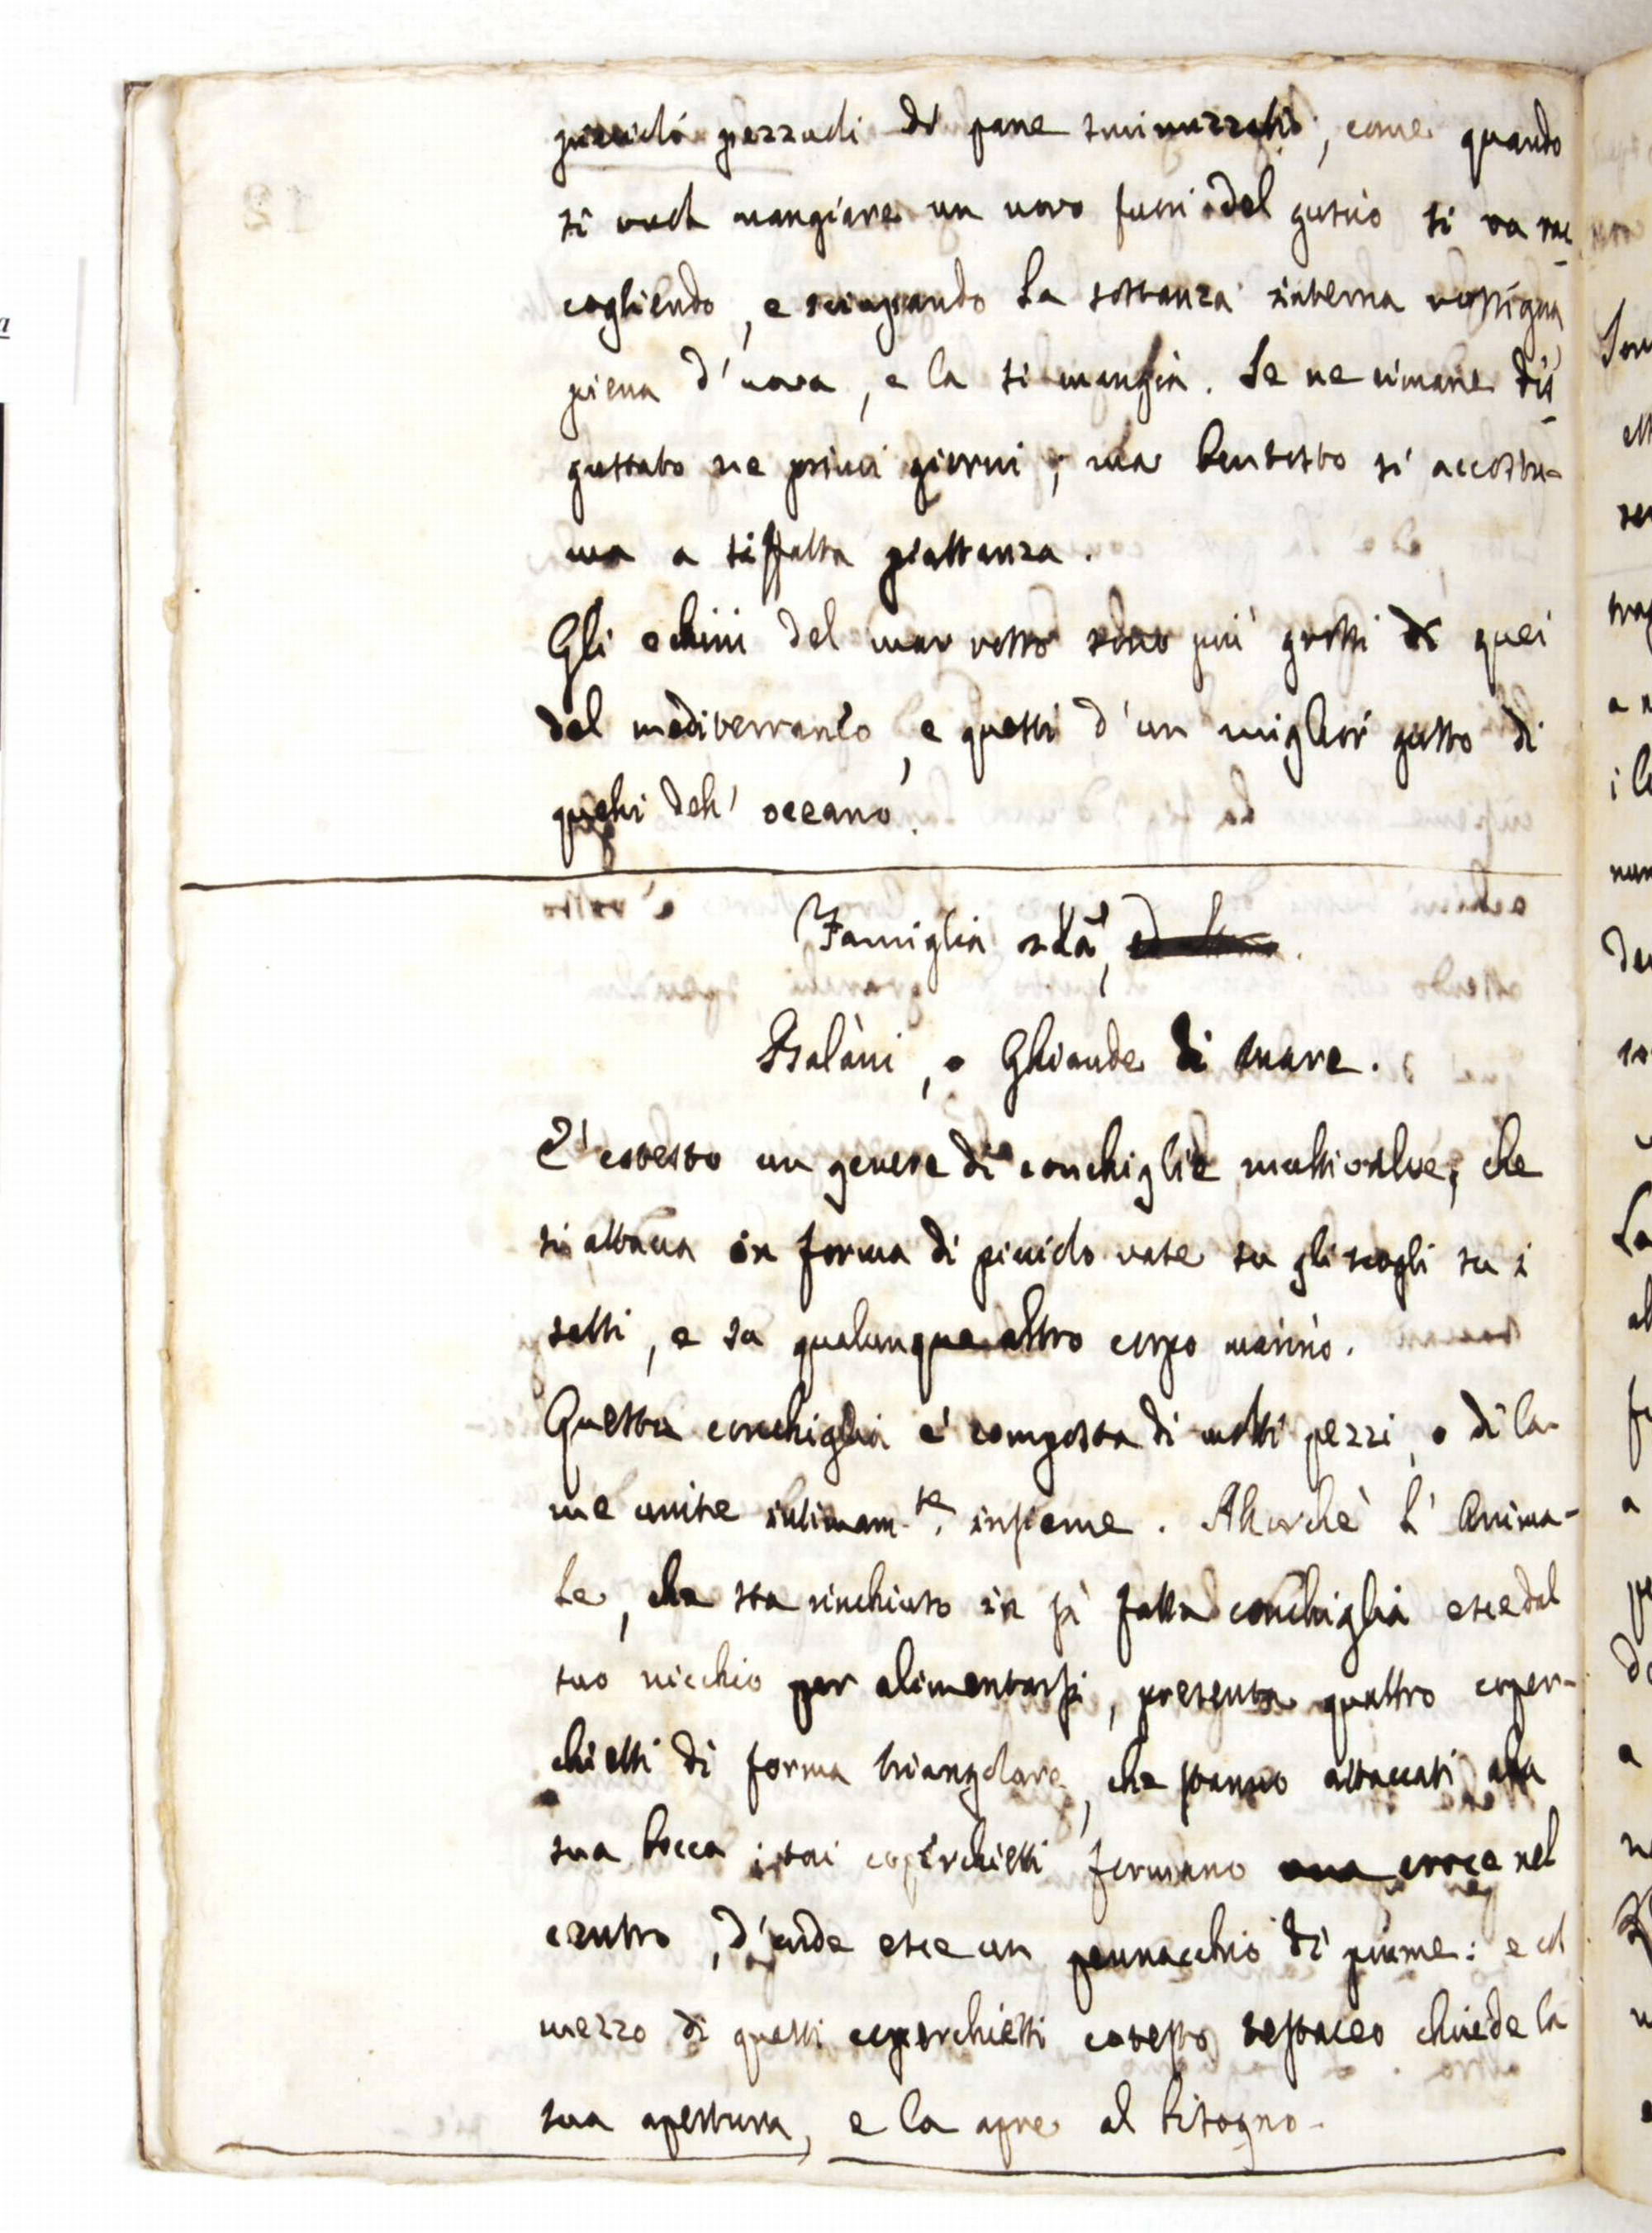 piccioli pezzuoli di pane sminuzzati, come quando
si vuol mangiare un uovo fuori del guscio si va rac
cogliendo, e sciupando la sostanza interna rossigna
piena d'uova, e la si mangia. Se ne rimane dis
gustato ne primi giorni; ma bentosto si accostu-
ma a siffatta piattanza.
Gli echini del mar rosso sono più grossi di quei
del mediterraneo, e questi d'un miglior gusto di
quelli dell'oceano.
Famiglia
Balàni, o Ghiande di mare.
E' cotesto un genere di conchiglie multivalve, che
si attacca in forma di picciolo vase su gli scogli su i
setti, e su qualunque altro corpo marino.
Questa conchiglia è composta di molti pezzi, o di la-
me unite intimam.te insieme. Allorchè l'Anima-
le, che sta rinchiuso in sì fatta conchiglia esce dal
suo nicchio per alimentarsi, presenta quattro coper-
chietti di forma triangolare, che stanno attaccati alla
sua bocca i tai coperchietti formano una croce nel
centro, d'onde esce un pennacchio di piume: e col
mezzo di questi coperchietti cotesto testaceo chiude la
sua apertura, e la apre al bisogno.